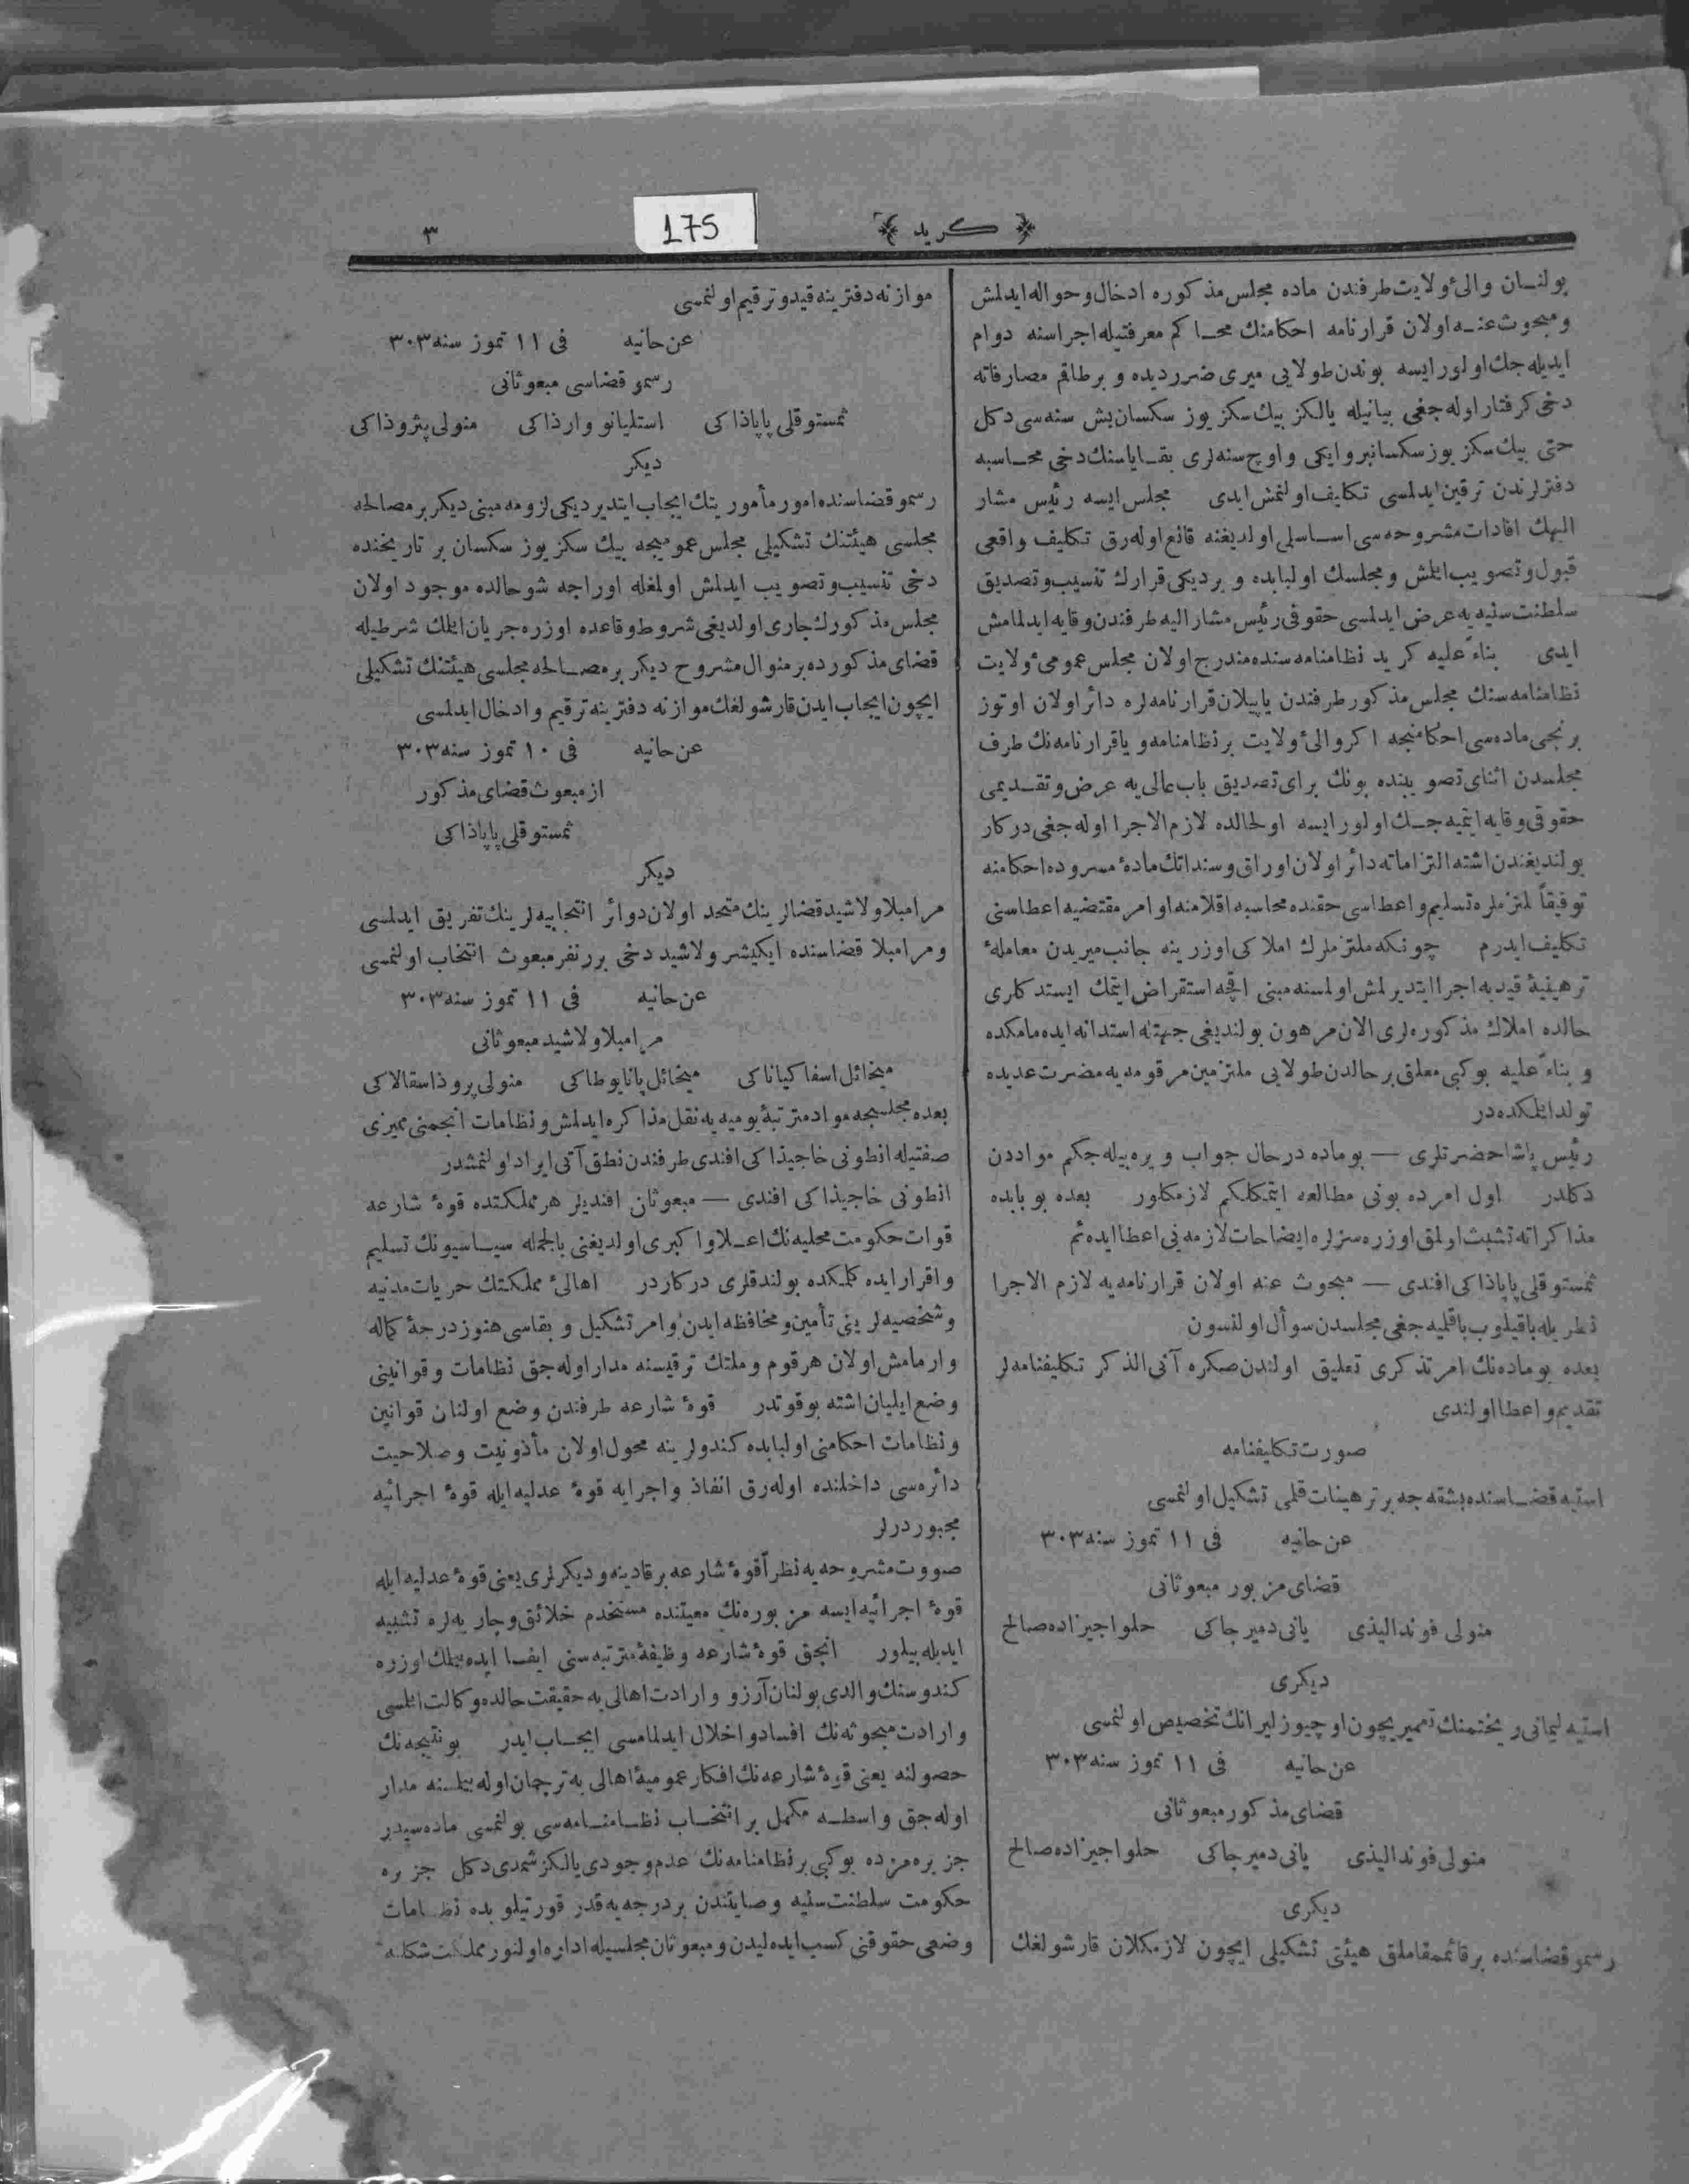 175
﴿ كريد ﴾
٣
بولنـان والئ ولايت طرفندن ماده مجلس مذكوره ادخال وحواله ايدلمش
ومبحوث عنـه اولان قرارنامه احكامنك محـاكم معرفتيله اجراسنه دوام
ايديله جك اولور ايسه بوندن طولايى ميرى ضررديده و برطاقم مصارفاته
دخى كرفتار اوله جغى بيانيله يالكز بيك سكز يوز سكسان بش سنه سى دكل
حتى بيك سكز يوز سكسانبر و ايكى و اوچ سنه لرى بقـاياسنك دخى محـاسبه
دفترلرندن ترقين ايدلمسى تكليف اولنمش ايدى مجلس ايسه رئيس مشار
اليهك افادات مشروحه سى اسـاسلى اولديغنه قانع اوله رق تكليف واقعى
قبول و تصويب ايلمش و مجلسك اولبابده و يرديكى قرارك تنسيب و تصديق
سلطنت سنيه يه عرض ايدلمسى حقوقى رئيس مشار اليه طرفندن وقايه ايدلمامش
ايدى بناءً عليه كريد نظامنامه سنده مندرج اولان مجلس عمومئ ولايت
نظامنامه سنك مجلس مذكور طرفندن ياپيلان قرارنامه لره دائر اولان اوتوز
برنجى ماده سى احكامنجه اكر والئ ولايت برنظامنامه و ياقرارنامه نك طرف
مجلسدن اثناى تصويبنده بونك براى تصديق باب عالى يه عرض و تقـديمى
حقوقى وقايه ايتميه جـك اولور ايسه اولحالده لازم الاجرا اوله جغى دركار
بولنديغندن اشته التزاماته دائر اولان اوراق و سنداتك مادهٔ مسروده احكامنه
توفيقاً ملتزملره تسليم و اعطاسى حقنده محاسبه اقلامنه اوامر مقتضيه اعطاسنى
تكليف ايدرم چونكه ملتزملرك املاكى اوزرينه جانب ميريدن معاملهٔ
ترهينيهٔ قيديه اجرا ايتديرلمش اولمسنه مبنى اقچه استقراض ايتمك ايستدكلرى
حالده املاك مذكوره لرى الان مرهون بولنديغى جهتله استدانه ايده مامكده
و بناءً عليه بوكبى معلق برحالدن طولايى ملتزمين مرقومه يه مضرت عديده
تولد ايلمكده در
رئيس پاشا حضرتلرى — بوماده درحال جواب ويره بيله جكم موادـدن
دكلدر اول امرده بونى مطالعه ايتمكلكم لازمكلور بعده بوبابده
مذاكراته تشبث اولمق اوزره سزلره ايضاحات لازمه يى اعطا ايده‌رم
ثمستوقلى پاپاداكى افندى — مبحوث عنه اولان قرارنامه يه لازم الاجرا
نظريله باقيلوب باقلميه جغى مجلسدن سوأل اولنسون
بعده بو ماده نك امر تذكرى تعليق اولندن صكره آتى الذكر تكليفنامه لر
تقديم و اعطا اولندى
صورت تكليفنامه
استيه قضـاسنده بشقه جه بر ترهينات قلمى تشكيل اولنمسى
عن حانيه فى ١١ تموز سنه ٣٠٣
قضاى مزبور مبعوثانى
منولى فونداليذى يانى دميرجاكى حلواجيزاده صالح
ديكرى
استيه ليمانى ريختمنك تعميريچون اوچيوز ليرانك تخصيص اولنمسى
عن حانيه فى ١١ تموز سنه ٣٠٣
قضاى مذكور مبعوثانى
منولى فونداليذى يانى دميرجاكى حلواجيزاده صالح
ديكرى
رسمو قضاسنده برقائممقاملق هيئتى تشكيلى ايچون لازمكلان قارشولغك
موازنه دفترينه قيد و ترقيم اولنمسى
عن حانيه فى ١١ تموز سنه ٣٠٣
رسمو قضاسى مبعوثانى
ثمستوقلى پاپاذاكى استليانو وارذاكى منولى پتروذاكى
ديكر
رسمو قضاسنده امور مأموريتك ايجاب ايتديرديكى لزومه مبنى ديكر بر مصالحه
مجلسى هيئتنك تشكيلى مجلس عموميجه بيك سكز يوز سكسان بر تاريخنده
دخى تنسيب و تصويب ايدلمش اولمغله اوراجه شو حالده موجود اولان
مجلس مذكورك جارى اولديغى شروط و قاعده اوزره جريان ايلمك شرطيله
قضاى مذكورده بر منوال مشروح ديكر بر مصـالحه مجلسى هيئتنك تشكيلى
ايچون ايجاب ايدن قارشولغك موازنه دفترينه ترقيم و ادخال ايدلمسى
عن حانيه فى ١٠ تموز سنه ٣٠٣
از مبعوث قضاى مذكور
ثمستوقلى پاپاذاكى
ديكر
مرامبلا و لاشيد قضالرينك متحد اولان دوائر انتخابيه لرينك تفريق ايدلمسى
و مرامبلا قضاسنده ايكيشر و لاشيد دخى بررنفر مبعوث انتخاب اولنمسى
عن حانيه فى ١١ تموز سنه ٣٠٣
مرامبلا و لاشيد مبعوثانى
ميخائل اسفاكياناكى ميخائل پانايوطاكى منولى پروذاسقالاكى
بعده مجلسجه مواد مترتبهٔ يوميه يه نقل مذاكره ايدلمش و نظامات انجمنى مميزى
صفتيله انطونى خاجيذاكى افندى طرفندن نطق آتى ايراد اولنمشدر
انطونى خاجيذاكى افندى — مبعوثان افنديلر هر مملكتده قوهٔ شارعه
قوات حكومت محليه نك اعـلا و اكبرى اولديغنى بالجمله سيـاسيونك تسليم
و اقرار ايده كلمكده بولندقلرى دركاردر اهالئ مملكتك حريات مدنيه
و شخصيه لرينى تأمين و محافظه ايدن و امر تشكيل و بقاسى هنوز درجهٔ كماله
وارمامش اولان هر قوم و ملتك ترقيسنه مدار اوله جق نظامات و قوانينى
وضع ايليان اشته بو قوتدر قوهٔ شارعه طرفندن وضع اولنان قوانين
و نظامات احكامنى اولبابده كندولرينه محول اولان مأذونيت و صلاحيت
دائره سى داخلنده اوله رق انفاذ و اجرايه قوهٔ عدليه ايله قوهٔ اجرائيه
مجبوردرلر
صورت مشروحه يه نظراً قوهٔ شارعه برقادينه و ديكرلرى يعنى قوهٔ عدليه ايله
قوهٔ اجرائيه ايسه مزبوره نك معيتنده مستخدم خلائق و جاريه لره تشبيه
ايديله بيلور انجق قوهٔ شارعه وظيفهٔ مترتبه سنى ايفـا ايده بيلمك اوزره
كندوسنك والدى بولنان آرزو و ارادت اهالى يه حقيقت حالده وكالت ايلمسى
و ارادت مبحوثه نك افساد و اخلال ايدلمامسى ايجـاب ايدر بو نتيجه نك
حصولنه يعنى قوهٔ شارعه نك افكار عموميهٔ اهالى يه ترجمان اوله بيلمسنه مدار
اوله جق واسطـه مكمل بر انتخـاب نظـامنـامه سى بولنمسى ماده سيدر
جزيره مزده بوكبى بر نظامنامه نك عدم وجودى يالكز شمدى دكل جزيره
حكومت سلطنت سنيه وصايتندن بر درجه يه قدر قورتيلوبده نظـامات
وضعى حقوقنى كسب ايده ليدن و مبعوثان مجلسيله اداره اولنور مملكت شكلنه